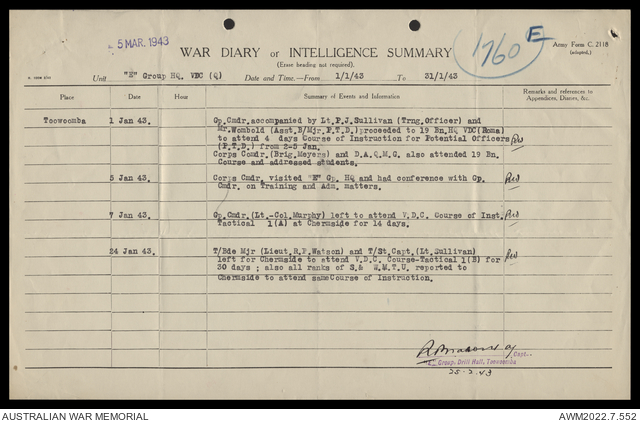 5 MAR. 1943
1760 E
Army Form C. 2118
(adapted.)
WAR DIARY or INTELLIGENCE SUMMARY
(Erase heading not required).
Unit "E" Group HQ. VDC (Q) Date and Time.—From 1/1/43 To 31/1/43
Place Date Hour Summary of Events and Information Remarks and references to
Appendices, Diaries, &c.
Toowoomba 1 Jan 43. Gp.Cmdr.accompanied by Lt.P.J.Sullivan (Trng.Officer) and
Mr.Wombold (Asst.B/Mjr.P.T.D.)proceeded to 19 Bn.HQ VDC(Roma)
to attend 4 days Course of Instruction for Potential Officers
(P.T.D.) from 2-5 Jan.
Corps Comdr.(Brig.Meyers) and D.A.Q.M.G. also attended 19 Bn.
Course and addressed students.
5 Jan 43. Corps Cmdr. visited "E" Gp. HQ and had conference with Gp.
Cmdr. on Training and Adm. matters.
7 Jan 43. Gp.Cmdr.(Lt.-Col.Murphy) left to attend V.D.C. Course of Inst.
Tactical 1(A) at Chermside for 14 days.
24 Jan 43. T/Bde Mjr (Lieut.R.P.Watson) and T/St.Capt.(Lt.Sullivan)
left for Chermside to attend V.D.C. Course-Tactical 1(B) for
30 days ; also all ranks of S.& W.M.T.U. reported to
Chermside to attend sameCourse of Instruction.
Capt.
"E" Group, Drill Hall, Toowoomba
25-2-43
AUSTRALIAN WAR MEMORIAL AWM2022.7.552